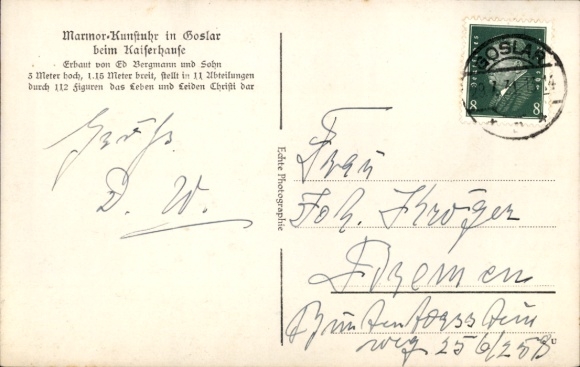 Marmor-Kunstuhr in Goslar
beim Kaiserhause
Erbaut von Ed Bergmann und Sohn
3 Meter hoch, 1.15 Meter breit, stellt in 11 Abteilungen
durch 112 Figuren das Leben und Leiden Christi dar
Gruß.
D. W.
Echte Photographie
GOSLAR
8 8
Frau
Joh. Kröger
Bremen
Buntentorsstein
weg 256/258